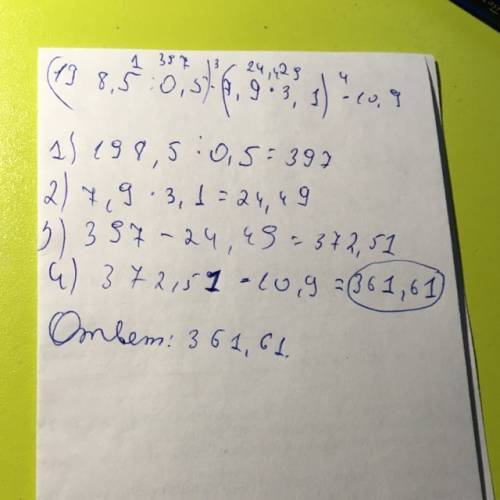 1 397 3 24,429 4
(19 8,5 : 0,5) - (7,9 · 3,1) - 10,9
1) 198,5 : 0,5 = 397
2) 7,9 · 3,1 = 24,49
3) 397 - 24,49 = 372,51
4) 372,51 - 10,9 = 361,61
Ответ: 361,61.